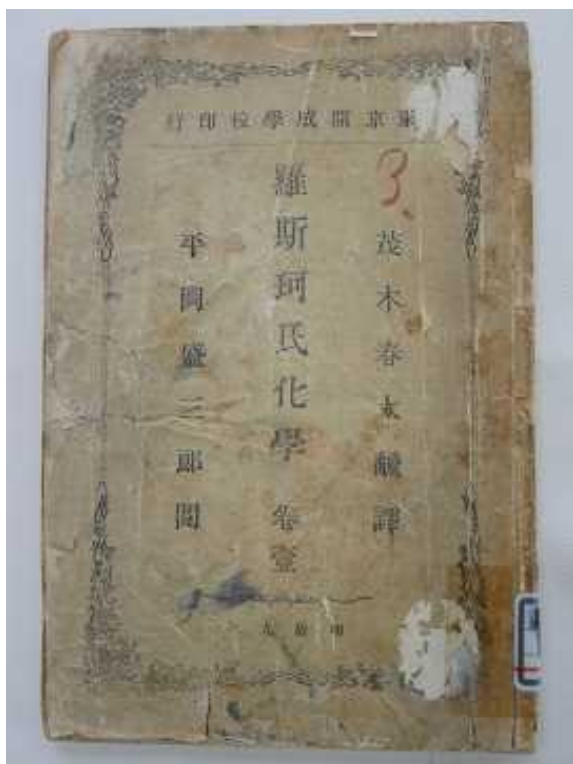 東京開成學校印行
3、
茂木春太飜譯
羅斯珂氏化學 卷壹
平岡盛三郎閲
明治九